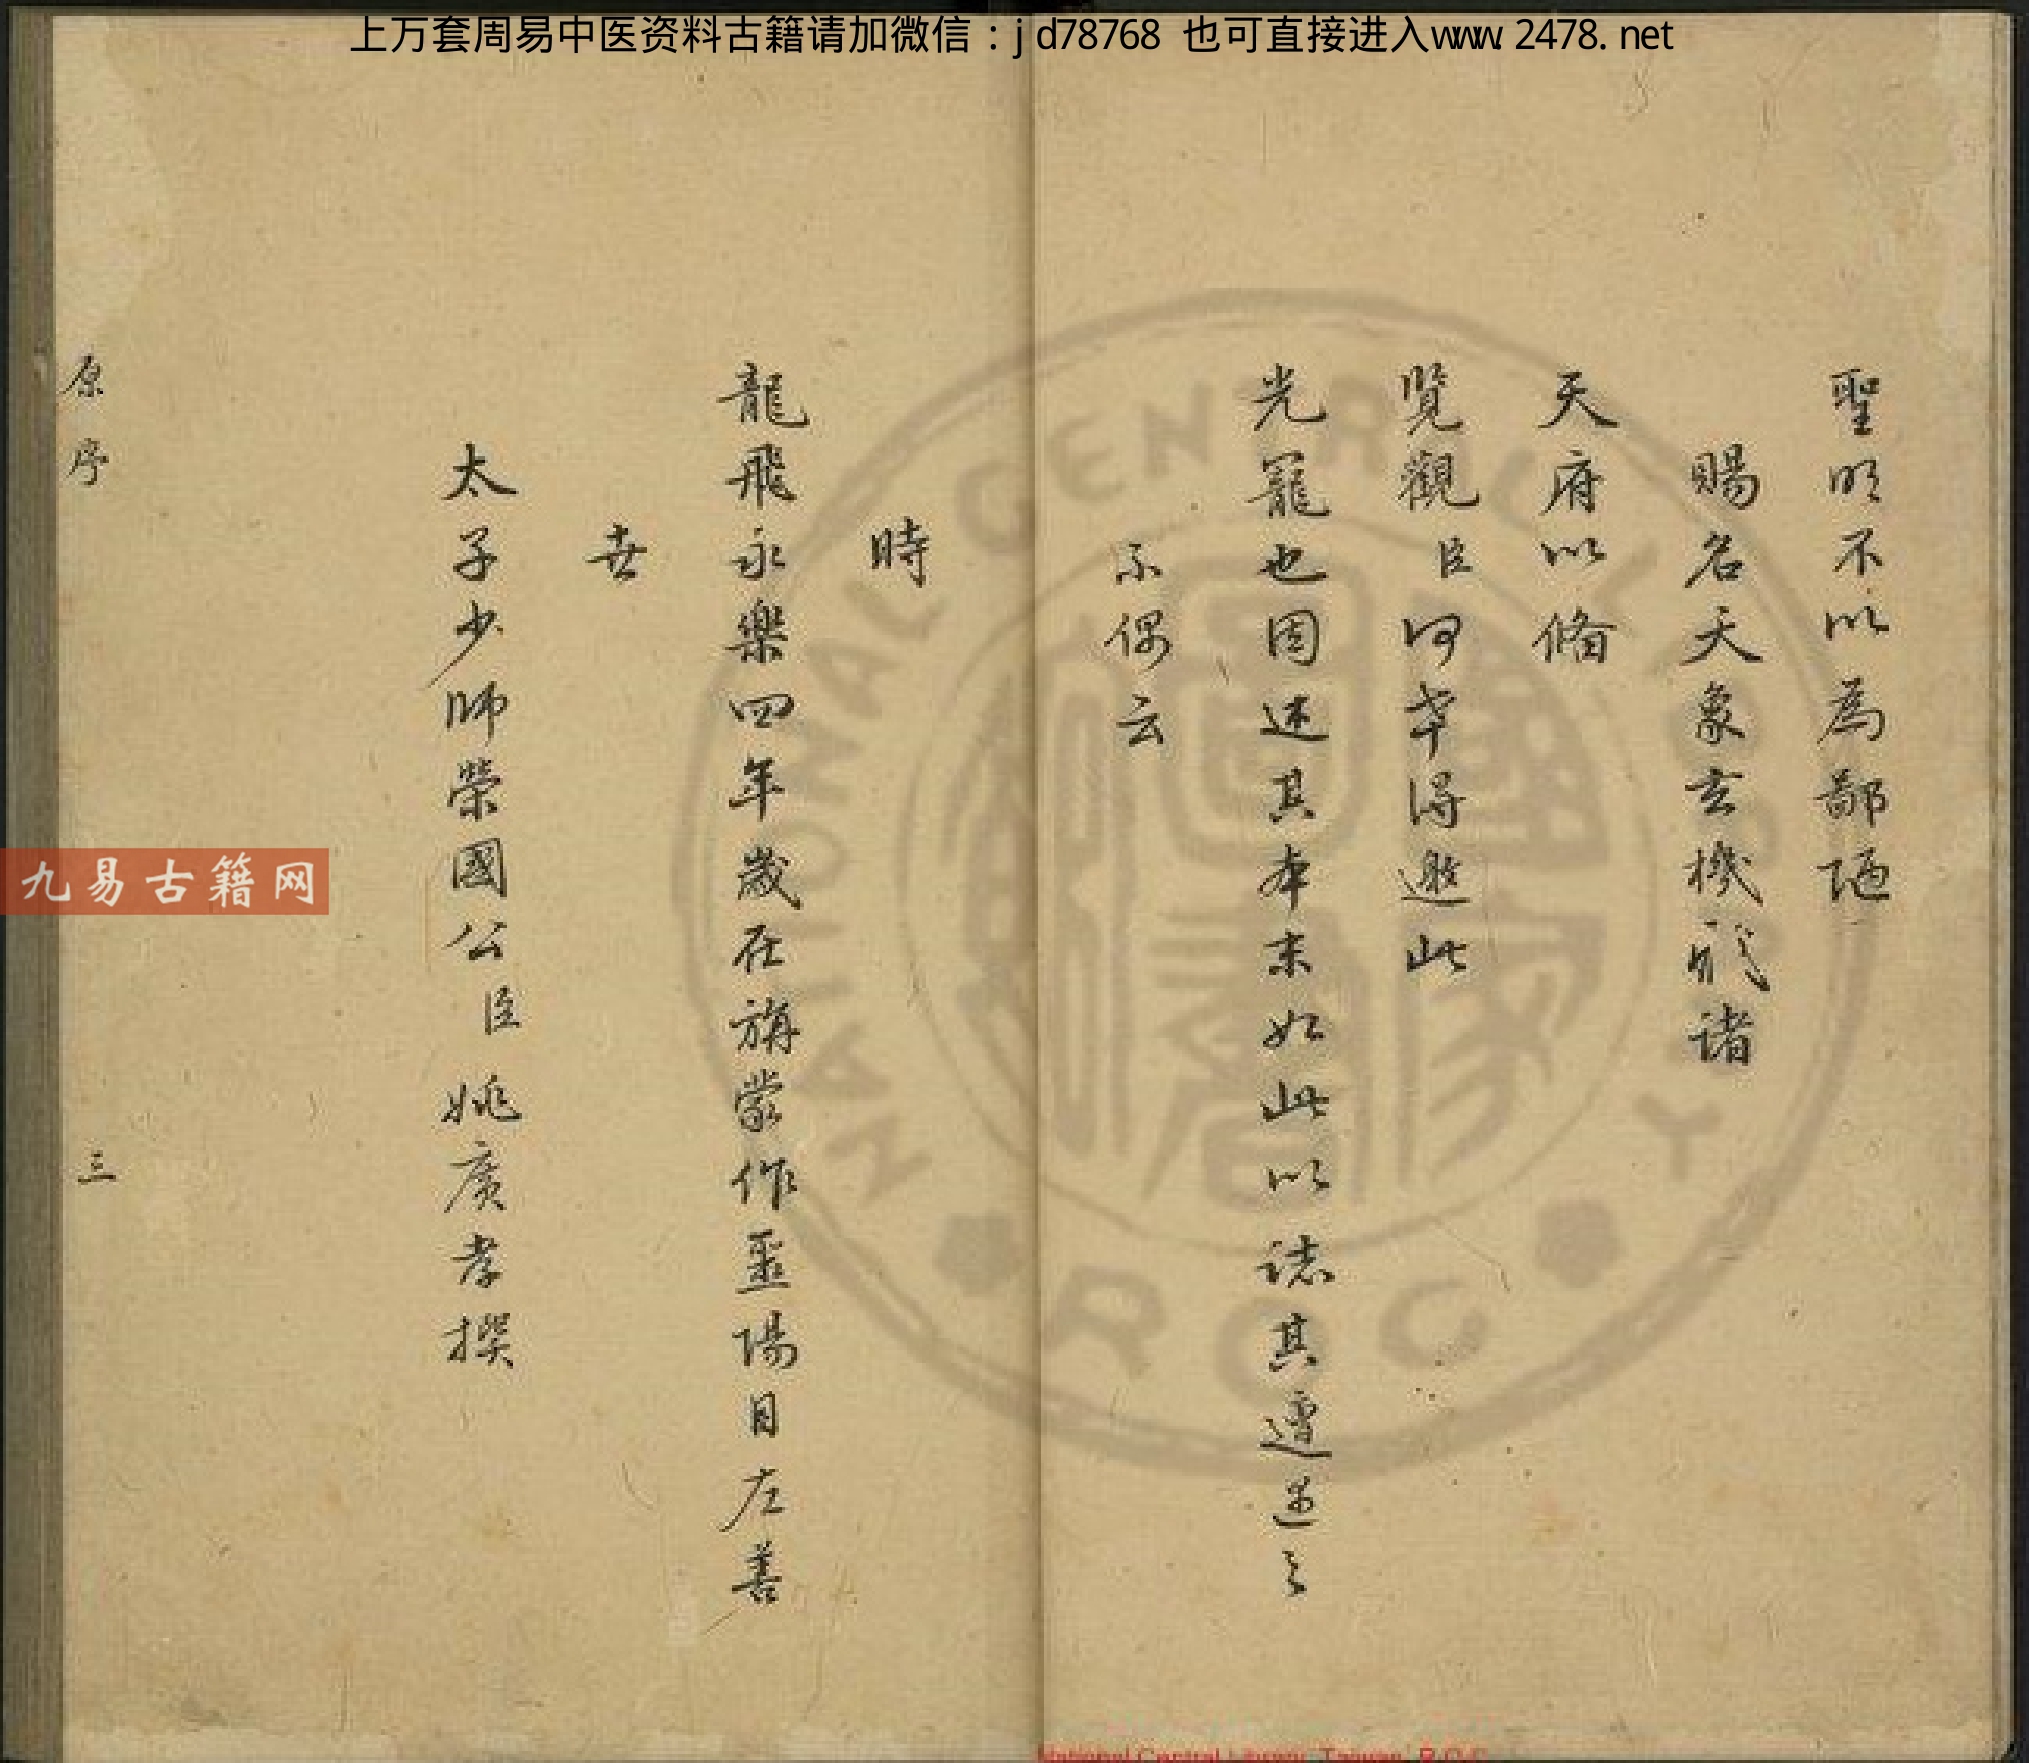 上万套周易中医资料古籍请加微信：jd78768 也可直接进入www.2478.net
聖明不以為鄙陋
賜名天象玄機形諸
天府以脩
覽觀臣何幸得邀此
光寵也因述其本末如此以誌其遭遇之
不偶云
時
龍飛永樂四年歲在旃蒙作噩陽月左善
世
太子少師榮國公臣姚廣孝撰
原序
三
九易古籍网
NATIONAL CENTRAL LIBRARY
ROC
National Central Library, Taiwan, R.O.C